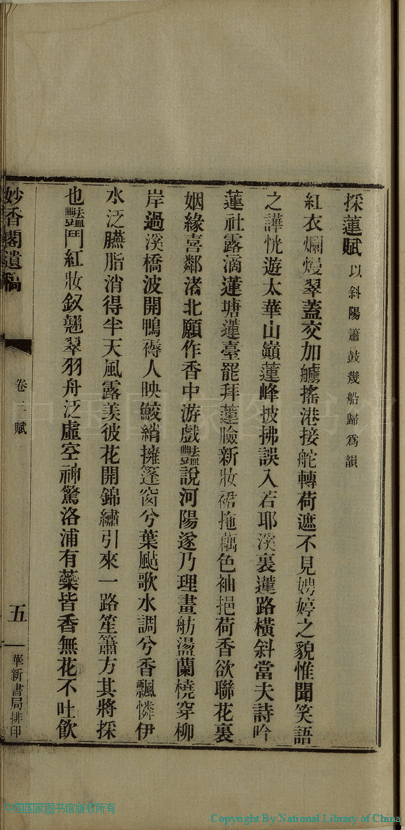 採蓮賦以斜陽簫鼓幾船歸為韻
紅衣爛熳翠蓋交加艫搖港接舵轉荷遮不見娉婷之貌惟聞笑語
之譁恍遊太華山巔蓮峰披拂誤入若耶溪裏蓮路橫斜當夫詩吟
蓮社露滴蓮塘蓮臺罷拜蓮臉新妝裙拖藕色袖挹荷香欲聯花裏
姻緣喜鄰渚北願作香中游戲豔說河陽遂乃理畫舫盪蘭橈穿柳
岸過溪橋波開鴨褥人映鮫綃擁篷窗兮葉颭歌水調兮香飄憐伊
水泛臙脂消得半天風露美彼花開錦繡引來一路笙簫方其將採
也豔鬥紅妝釵翹翠羽舟泛虛空神驚洛浦有蘂皆香無花不吐飲
妙香閣遺稿
卷二 賦
五
華新書局排印
中国国家图书馆版权所有
Copyright By National Library of China